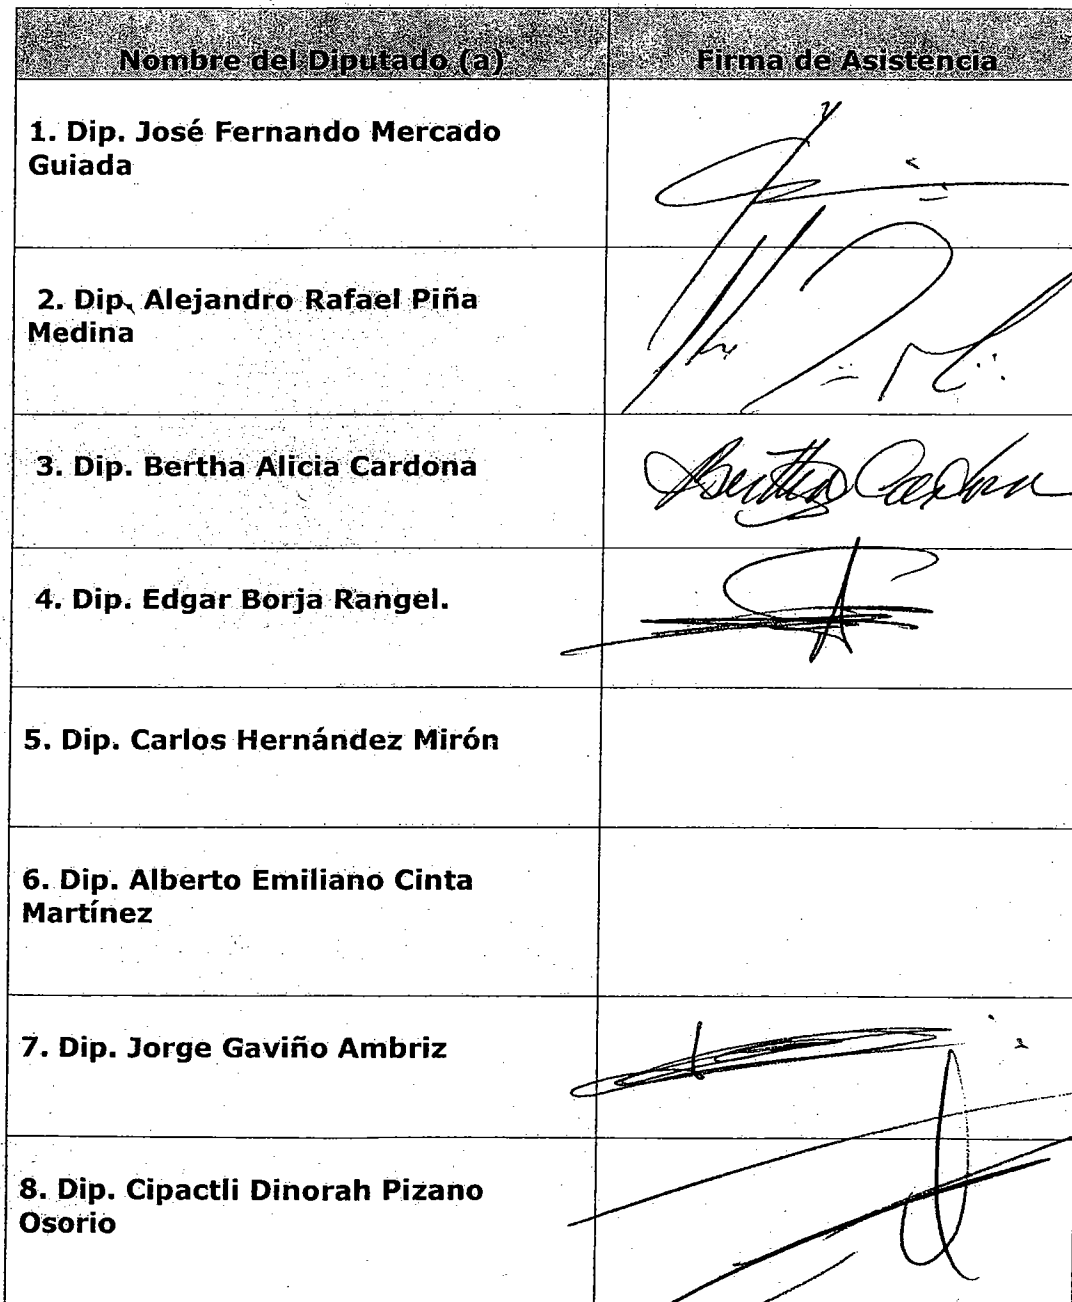 Nombre del Diputado (a) Firma de Asistencia
1. Dip. José Fernando Mercado
Guiada
2. Dip. Alejandro Rafael Piña
Medina
3. Dip. Bertha Alicia Cardona
Bertha Cardona
4. Dip. Edgar Borja Rangel.
5. Dip. Carlos Hernández Mirón
6. Dip. Alberto Emiliano Cinta
Martínez
7. Dip. Jorge Gaviño Ambriz
8. Dip. Cipactli Dinorah Pizano
Osorio